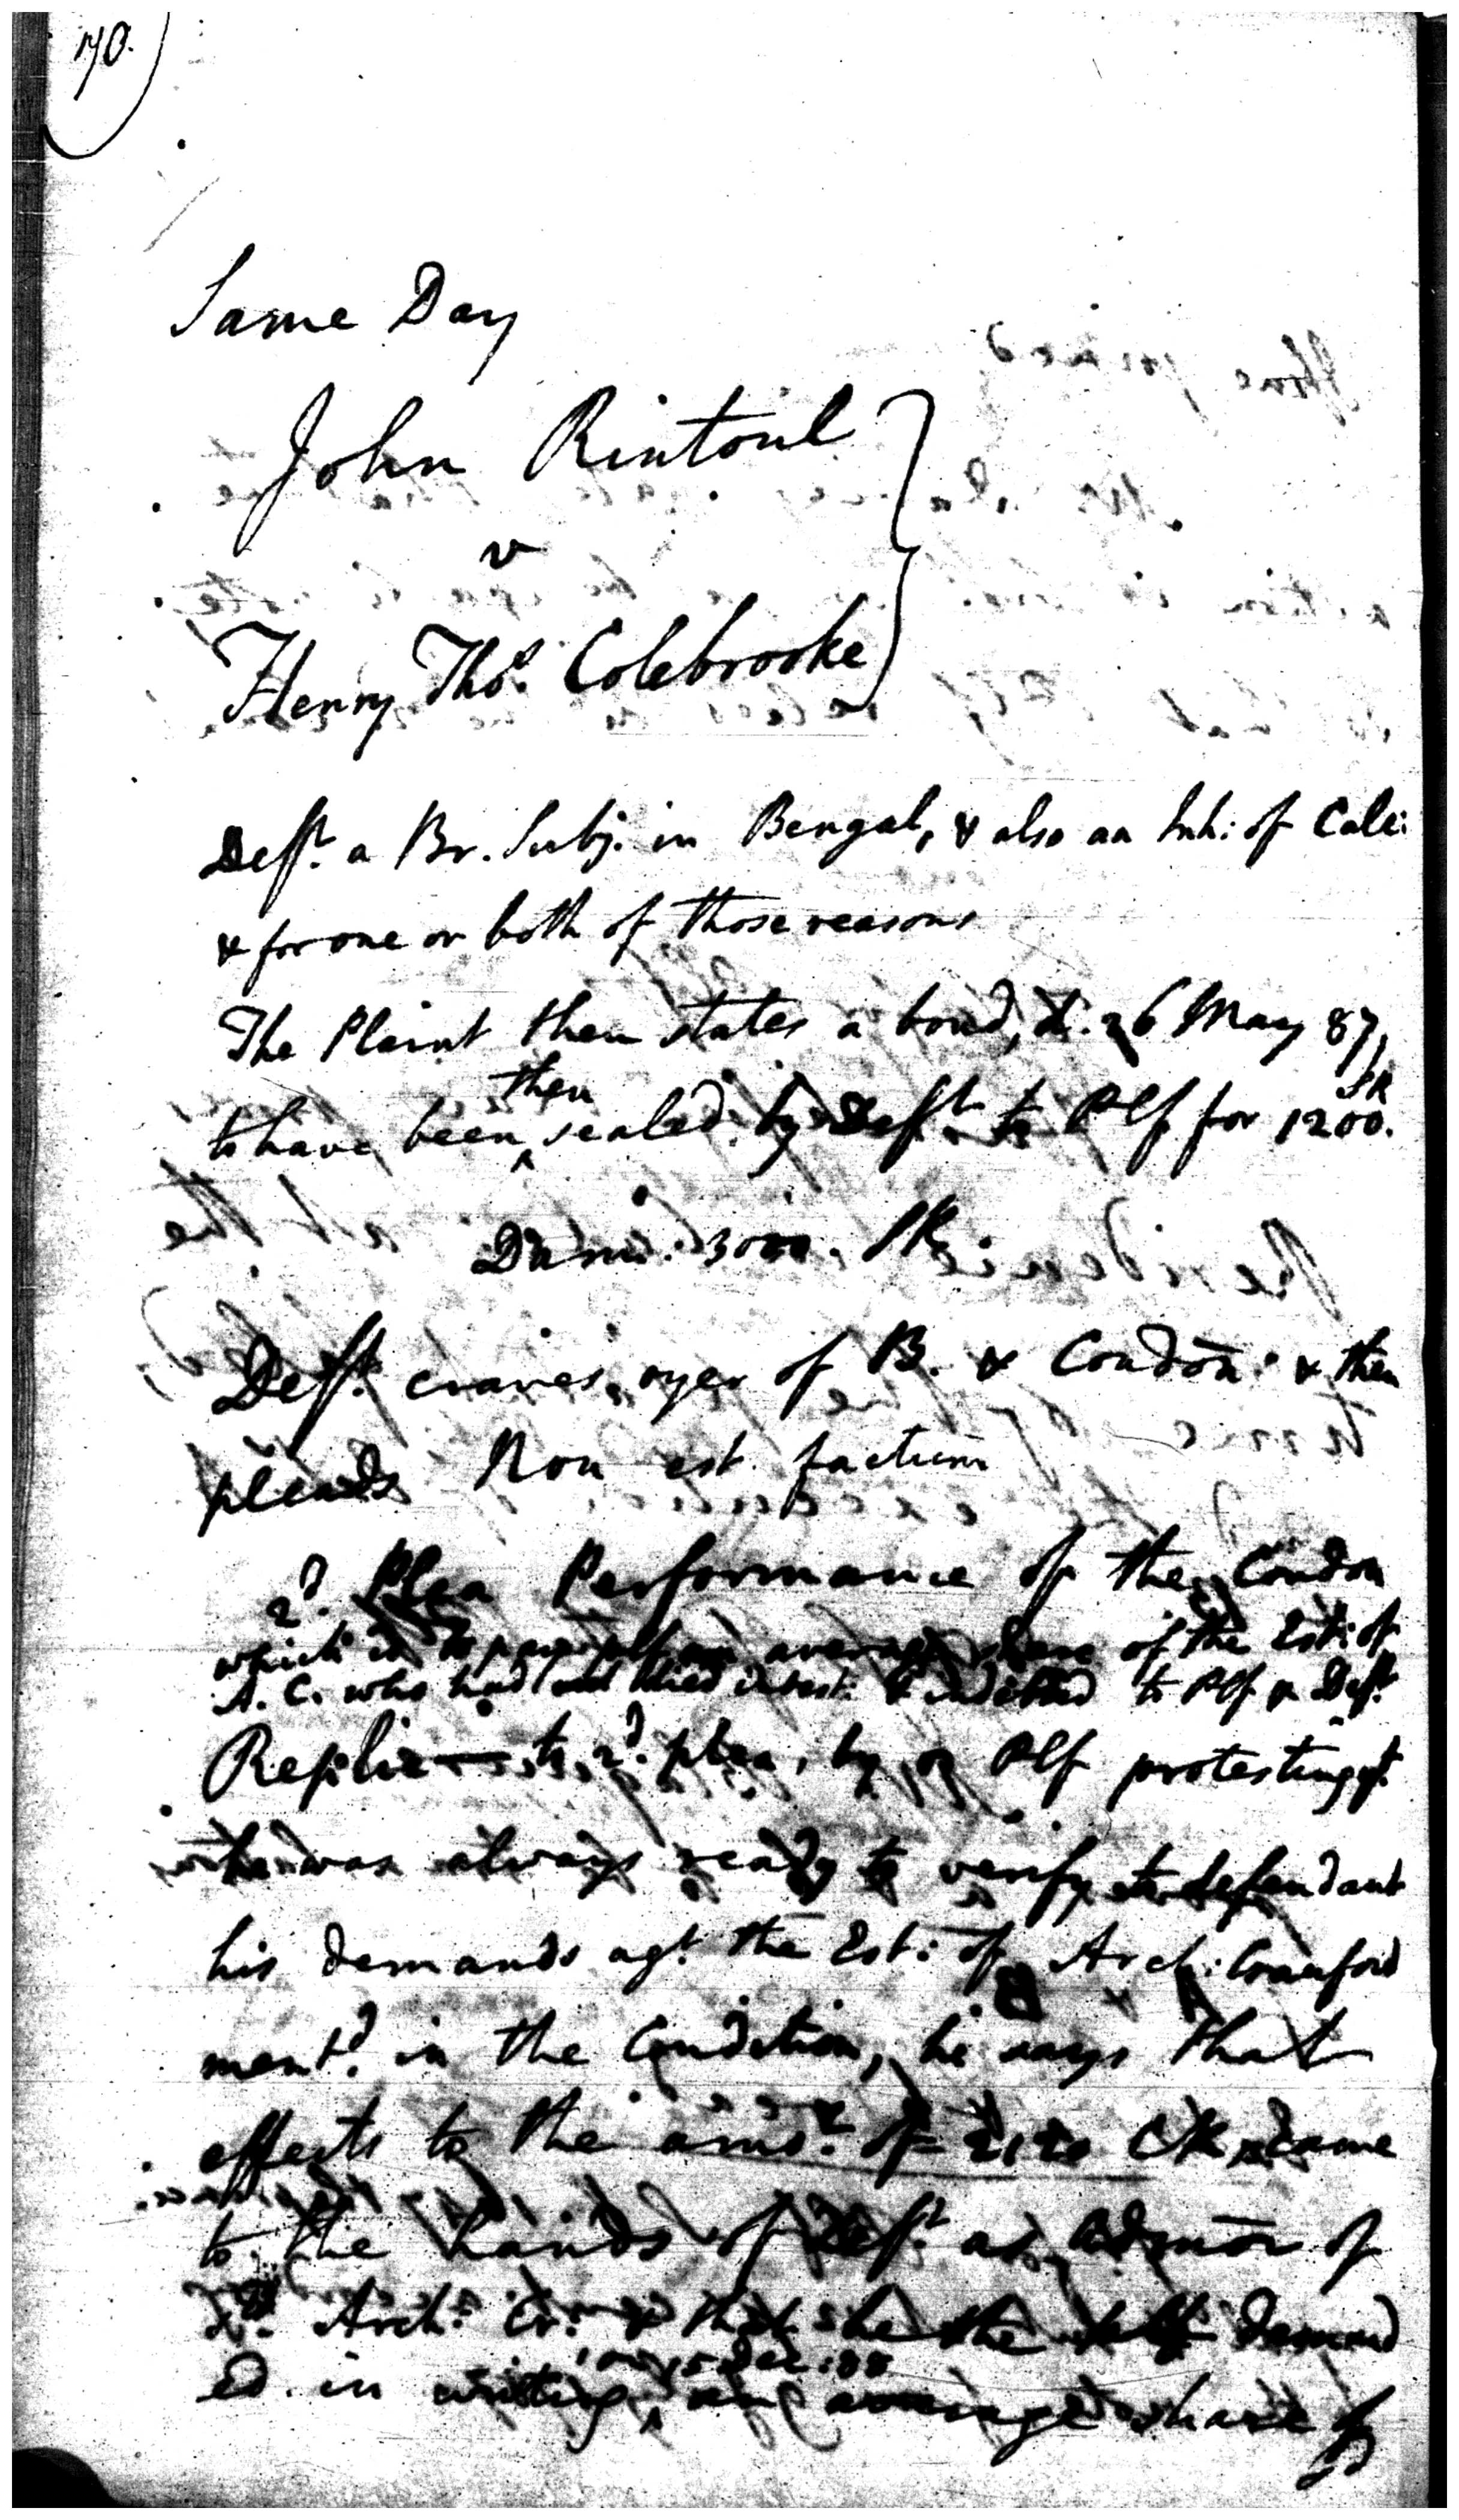 70.
Same Day
John Rintoul
v
Henry Thos. Colebrooke
Deft. a Br. Subj. in Bengal, & also an Inh: of Calc:
& for one or both of those reasons
The Plaint then states a bond, dt. 26 May 87,
then SR
to have been sealed by Deft. to Plf for 1200.
Dam: 3000. SR.
Deft. craves oyer of B. & Condon. & then
pleads Non est factum
2d. Plea Performance of the Condon
which is to pay average share of the Est: of
A. C. who had died intest: & indebted to Plf & Deft.
Replic to 2d. plea, by Plf protesting yt.
he was always ready to verify to defendant
his demands agt. the Est: of Arch: Craufurd
mentd. in the Condition, he says that
effects to the amot. of CR came
to the hands of Deft. as Admor of
Arch: Cr: & that he the demand
on 15 Dec: 88
ed in writing, average share of